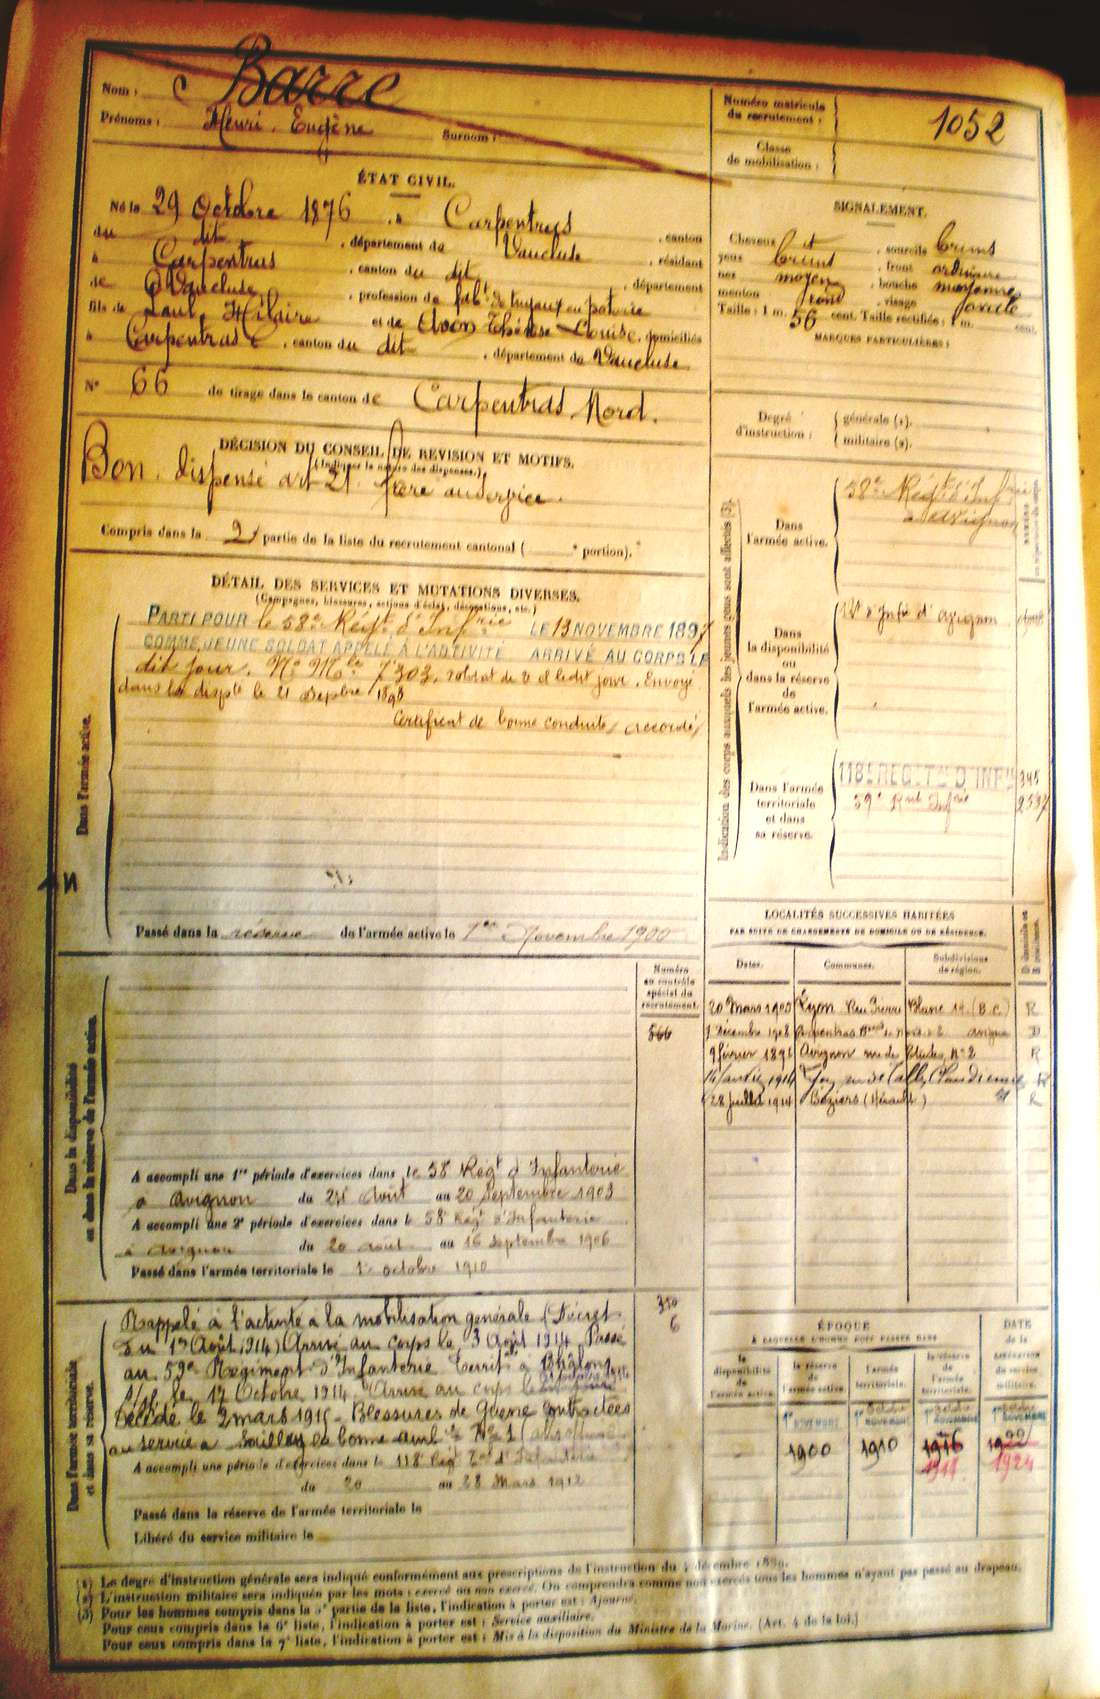 Nom : Barre
Prénoms : Henri Eugène Surnom :
Numéro matricule du recrutement : 1052
Classe de mobilisation :
ÉTAT CIVIL.
Né le 29 Octobre 1876, à Carpentras, canton
du dit, département de Vaucluse, résidant
à Carpentras, canton du dit, département
de Vaucluse, profession de fabt de tuyaux en poterie
fils de Paul Hilaire et de Thérèse Louise, domiciliés
à Carpentras, canton du dit, département de Vaucluse
N° 66 de tirage dans le canton de Carpentras Nord.
SIGNALEMENT.
Cheveux et, sourcils bruns
yeux bruns, front ordinaire
nez moyen, bouche moyenne
menton rond, visage ovale
Taille : 1 m. 56 cent. Taille rectifiée : 1 m. cent.
MARQUES PARTICULIÈRES :
Degré d'instruction : générale (1).
militaire (2).
DÉCISION DU CONSEIL DE RÉVISION ET MOTIFS.
(Indiquer la nature des dispenses.)
Bon. dispensé art 21. frère au service.
Compris dans la 2e partie de la liste du recrutement cantonal ( e portion).
DÉTAIL DES SERVICES ET MUTATIONS DIVERSES.
(Campagnes, blessures, actions d'éclat, décorations, etc.)
Dans l'armée active.
PARTI POUR le 58e Régt d'Infrie LE 13 NOVEMBRE 1897
COMME JEUNE SOLDAT APPELÉ À L'ACTIVITÉ ARRIVÉ AU CORPS LE
dit jour. No Mle 7303, soldat de 2 cl ledit jour. Envoyé
dans la dispté le 21 Septbre 1898
Certificat de bonne conduite accordé
Passé dans la réserve de l'armée active le 1er Novembre 1900
Indication des corps auxquels les jeunes gens sont affectés (3).
Dans l'armée active.
58e Régt d'Infrie
à Avignon
Dans la disponibilité ou dans la réserve de l'armée active.
d'Infie d'Avignon
Dans l'armée territoriale et dans sa réserve.
118e REGT TAL D'INFIE 345
59e Rnt Infrie
LOCALITÉS SUCCESSIVES HABITÉES
PAR SUITE DE CHANGEMENTS DE DOMICILE OU DE RÉSIDENCE.
Dates. Communes. Subdivisions de région.
20 Mars 1903 Lyon Rue Pierre Blanc 14. (B.C.) R
Décembre 1908 Carpentras Avignon D
9 février Avignon rue des Études, No 2 R
14 janvier 1914 R
28 Juillet 1914 Béziers (Hérault) R
Dans la disponibilité et dans la réserve de l'armée active.
Numéro au contrôle spécial du recrutement.
566
A accompli une 1re période d'exercices dans le 58 Régt d'Infanterie
à Avignon du 24 Août au 20 Septembre 1903
A accompli une 2e période d'exercices dans le 58e Régt d'Infanterie
à Avignon du 20 août au 16 Septembre 1906
Passé dans l'armée territoriale le 1er octobre 1910
Dans l'armée territoriale et dans sa réserve.
Rappelé à l'activité à la mobilisation générale (Décret
du 1er Août 1914) Arrivé au corps le 3 Août 1914 Passé
au 59e Régiment d'Infanterie
le 17 Octobre 1914 Arrivé au corps le
Décédé le 2 mars 1915 - Blessures de Guerre contractées
au service à
A accompli une période d'exercices dans le 118e Régt Tal d'Infanterie
du 20 au 28 Mars 1912
Passé dans la réserve de l'armée territoriale le
Libéré du service militaire le
ÉPOQUE
À LAQUELLE L'HOMME DOIT PASSER DANS
la disponibilité de l'armée active.
la réserve de l'armée active.
l'armée territoriale.
la réserve de l'armée territoriale.
DATE de la libération du service militaire.
1er NOVEMBRE
1900 1910 1916 1922
1924
(1) Le degré d'instruction générale sera indiqué conformément aux prescriptions de l'instruction du 4 décembre 1889.
(2) L'instruction militaire sera indiquée par les mots : exercé ou non exercé. On comprendra comme non exercés tous les hommes n'ayant pas passé au drapeau.
(3) Pour les hommes compris dans la 5e partie de la liste, l'indication à porter est : Ajourné.
Pour ceux compris dans la 6e liste, l'indication à porter est : Service auxiliaire.
Pour ceux compris dans la 7e liste, l'indication à porter est : Mis à la disposition du Ministre de la Marine. (Art. 4 de la loi.)